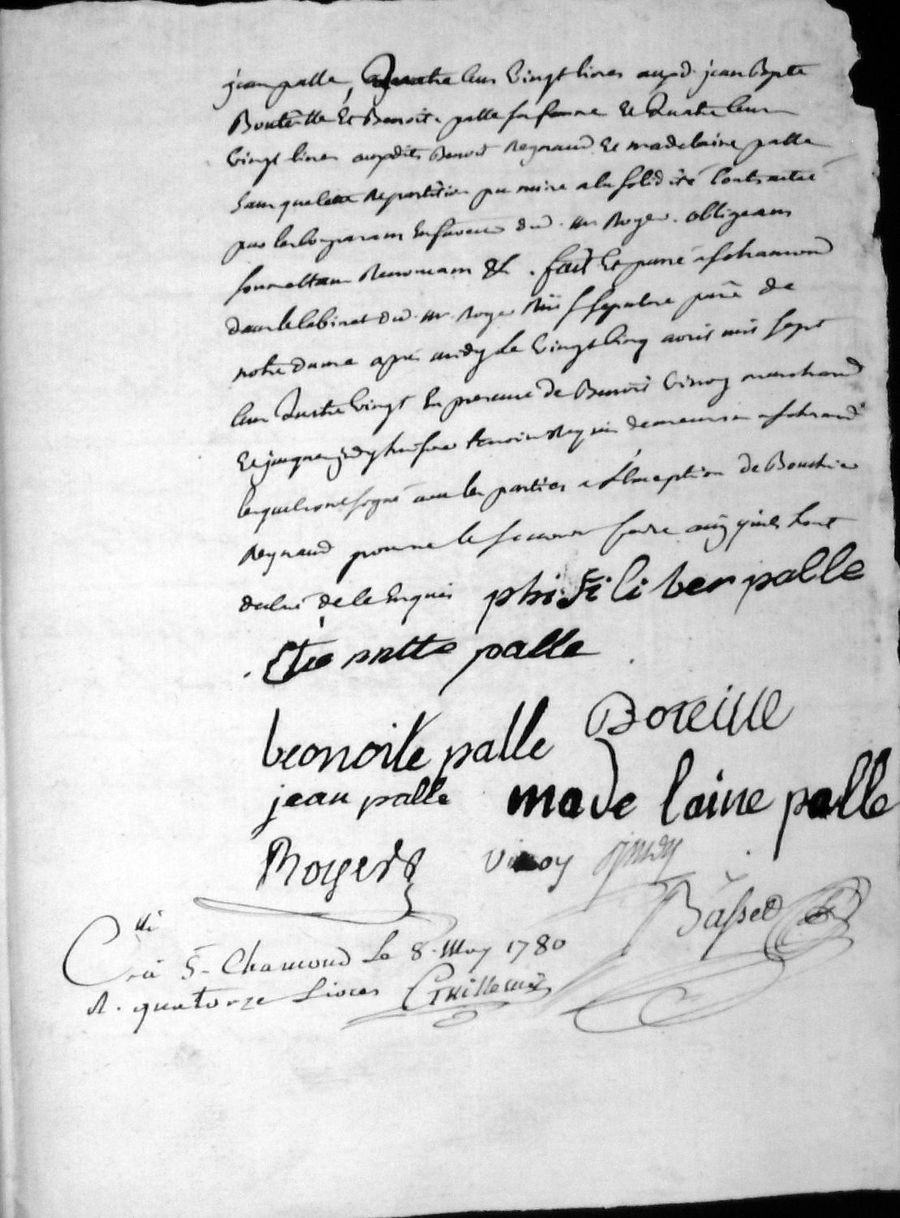 jean palle, Quatre cens vingt livres auxd. jean Bapte
Bouteille et Benoite palle sa femme et Quatre cens
vingt livres auxdits Benoit Reynaud et madelaine palle
sans que cette Repartition puisse nuire a la solidité contractée
par les comparans En faveur dud. sr. Roger. obligeans
soumettans Renonçans &c. fait et passé a st chamond
dans le cabinet dud. sr. Roger Rüe st sepulcre parse de
notre dame apres midy le vingt cinq avril mil sept
cens Quatre vingt En presence de Benoit vinoy marchand
et jacques temoins Requis demeurans a st chamond
lesquels ont signé avec les parties a l'Exception de
Reynaud pour ne le sçavoir faire ainsy qu'ils l'ont
declaré de ce Enquis phi li ber palle
Etie nette palle
benoite palle Boteille
jean palle made laine palle
Roger vinoy
Basset
Cllé a St. Chamond Le 8. May 1780
R. quatorze Livres Guillemin